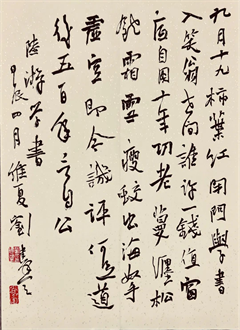 九月十九柿葉紅閉門學書
人笑翁世間誰許一錢值窗
底自用十年功老蔓纏松
飽霜雪瘦蛟出海拏
虛空即今譏評何足道
後五百年言自公
陸游學書
甲辰四月維夏劉